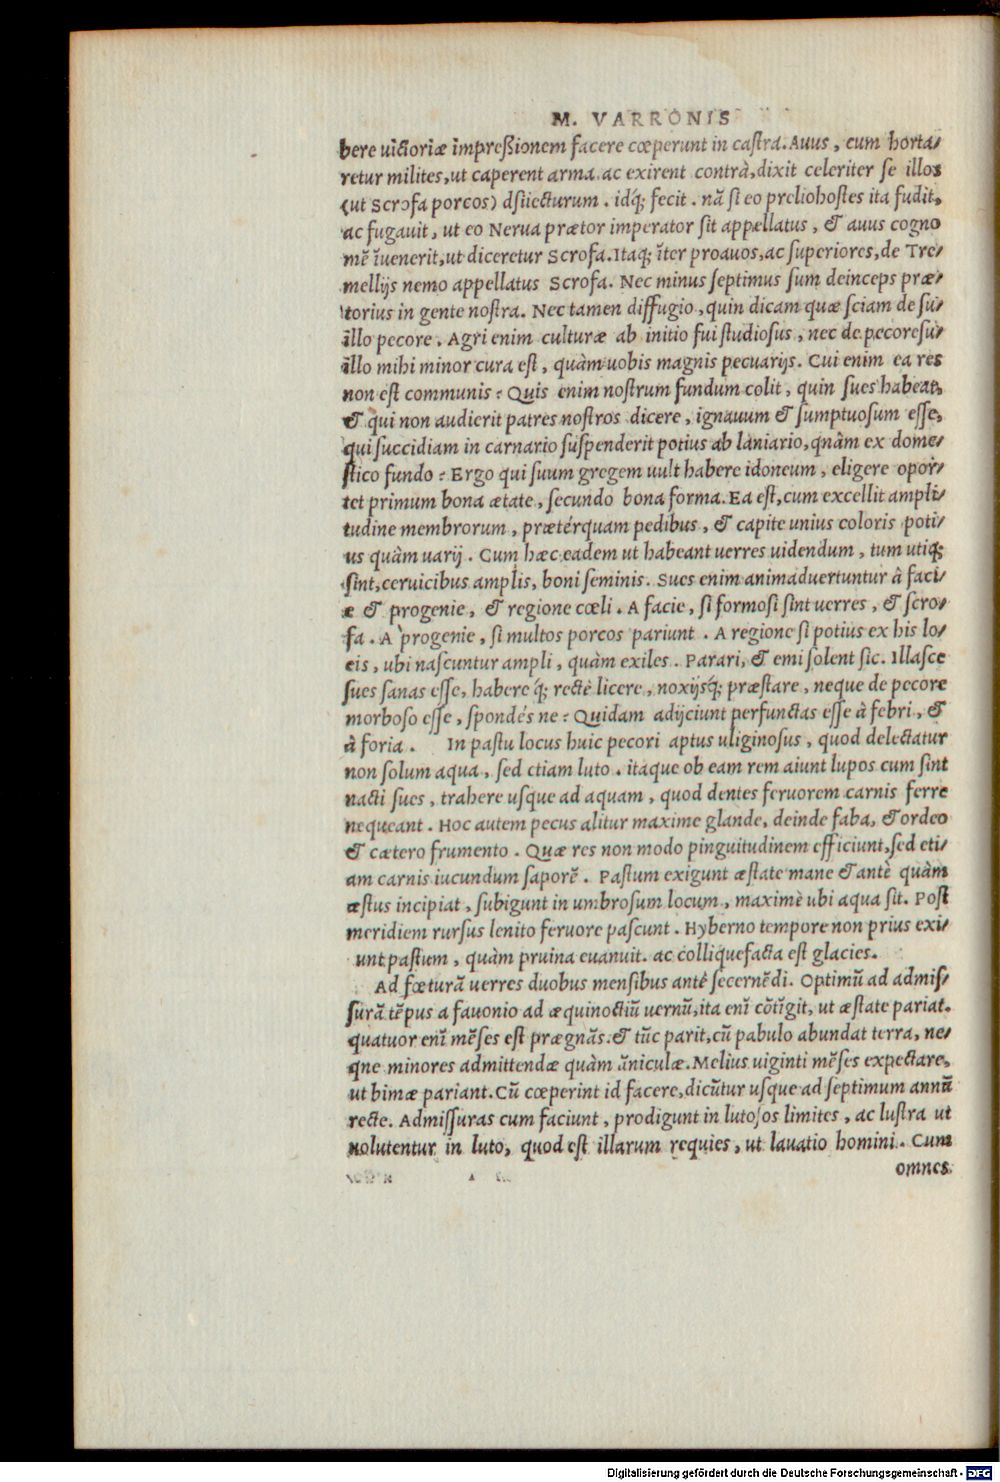 M. VARRONIS
bere uictoriæ impreßionem facere cœperunt in castra. Auus, cum horta/
retur milites, ut caperent arma ac exirent contrà, dixit celeriter se illos
(ut Scrofa porcos) dsiiecturum. idq́; fecit. nã si eo preliohostes ita fudit,
ac fugauit, ut eo Nerua prætor imperator sit appellatus, & auus cogno
mẽ ĩuenerit, ut diceretur Scrofa. Itaq; ĩter proauos, ac superiores, de Tre/
mellijs nemo appellatus Scrofa. Nec minus septimus sum deinceps præ/
torius in gente nostra. Nec tamen diffugio, quin dicam quæ sciam de su/
illo pecore. Agri enim culturæ ab initio fui studiosus, nec de pecoresu/
illo mihi minor cura est, quàm uobis magnis pecuarijs. Cui enim ea res
non est communis? Quis enim nostrum fundum colit, quin sues habeat,
& qui non audierit patres nostros dicere, ignauum & sumptuosum esse,
qui succidiam in carnario suspenderit potius ab laniario, qnàm ex dome/
stico fundo? Ergo qui suum gregem uult habere idoneum, eligere opor/
tet primum bona ætate, secundo bona forma. Ea est, cum excellit ampli/
tudine membrorum, prætérquam pedibus, & capite unius coloris poti/
us quàm uarij. Cum hæc eadem ut habeant uerres uidendum, tum utiq;
sint, ceruicibus amplis, boni seminis. Sues enim animaduertuntur à faci/
e & progenie, & regione cœli. A facie, si formosi sint uerres, & scro/
fa. A progenie, si multos porcos pariunt. A regione si potius ex his lo/
cis, ubi nascuntur ampli, quàm exiles. Parari, & emi solent sic. Illasce
sues sanas esse, habere q́; rectè licere, noxijsq́; præstare, neque de pecore
morboso esse, spondés ne? Quidam adijciunt perfunctas esse à febri, &
à foria. In pastu locus huic pecori aptus uliginosus, quod delectatur
non solum aqua, sed etiam luto. itaque ob eam rem aiunt lupos cum sint
nacti sues, trahere usque ad aquam, quod dentes feruorem carnis ferre
nequeant. Hoc autem pecus alitur maxime glande, deinde faba, & ordeo
& cætero frumento. Quæ res non modo pinguitudinem efficiunt, sed eti/
am carnis iucundum saporẽ. Pastum exigunt æstate mane & antè quàm
æstus incipiat, subigunt in umbrosum locum, maximè ubi aqua sit. Post
meridiem rursus lenito feruore pascunt. Hyberno tempore non prius exi/
unt pastum, quàm pruina euanuit. ac colliquefacta est glacies.
Ad fœturã uerres duobus mensibus anté secernẽdi. Optimũ ad admis/
surã tẽpus a fauonio ad æquinoctiũ uernũ, ita enĩ cõtĩgit, ut æstate pariat.
quatuor enĩ mẽses est prægnãs. & tũc parit, cũ pabulo abundat terra, ne/
qne minores admittendæ quàm ãniculæ. Melius uiginti mẽses expectare,
ut bimæ pariant. Cũ cœperint id facere, dicũtur usque ad septimum annũ
recte. Admissuras cum faciunt, prodigunt in lutosos limites, ac lustra ut
uolutentur in luto, quod est illarum requies, ut lauatio homini. Cum
omnes
Digitalisierung gefördert durch die Deutsche Forschungsgemeinschaft - DFG